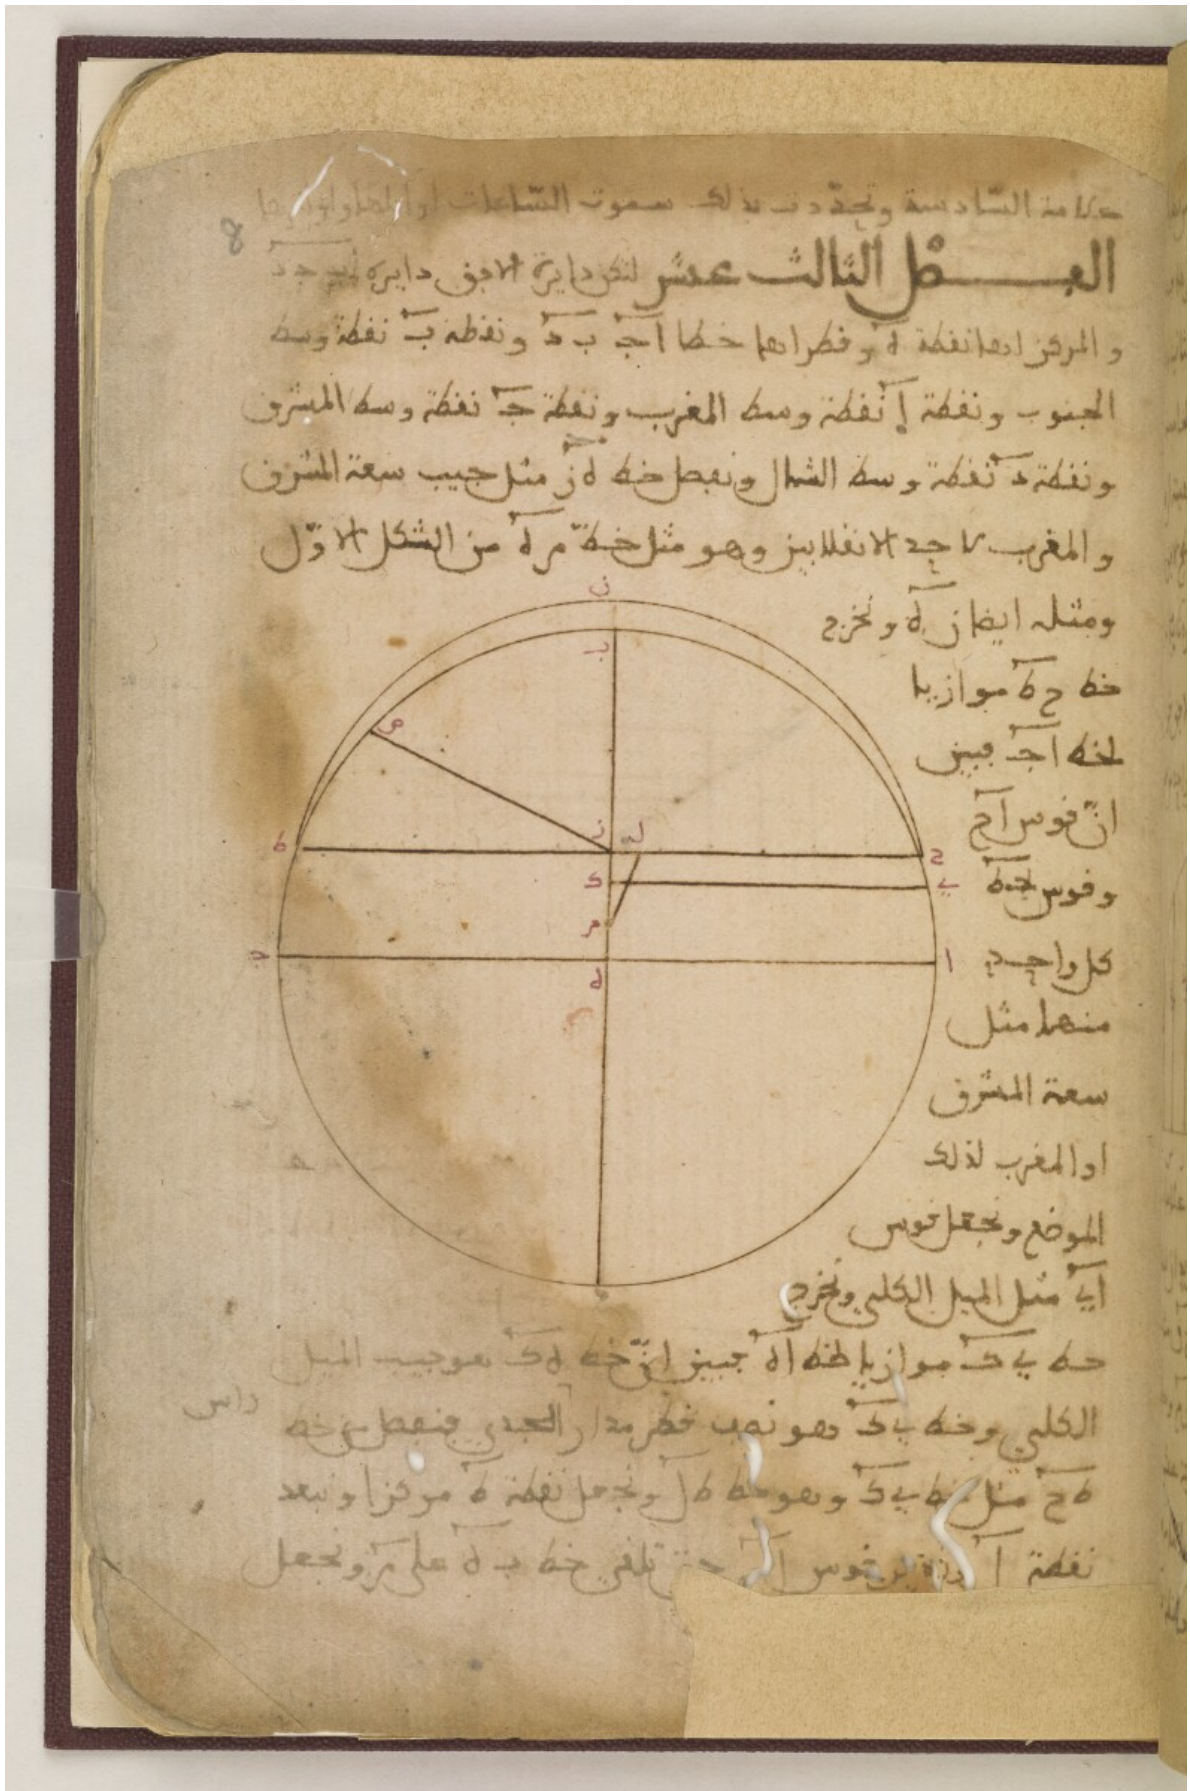 علامة السّادسة وتحدّدت بذلك سموت السّاعات اوايلها واواخرها
8
الفصل الثالث عشر لتكن دايرة الافق دايرة ابجد
والمركز لها نقطة ه وقطراها خطا اج ب د ونقطة ب نقطة وسط
الجنوب ونقطة ا نقطة وسط المغرب ونقطة ج نقطة وسط المشرق
ونقطة د نقطة وسط الشمال ونفصل خط ه ز مثل جيب سعة المشرق
والمغرب لاحد الانقلابين وهو مثل خطّ م ه من الشكل الاوّل
ومثله ايضا ز ه ونخرج
خط ح ط موازيا
لخط اج فبين
انّ قوس اح
وقوس جط
كل واحد
منهما مثل
سعة المشرق
او المغرب لذلك
الموضع ونجعل قوس
اي مثل الميل الكلي ونخرج
خط ي ك موازيا لخط اه فبين انّ خط ه ك هو جيب الميل
الكلي وخط ي ك هو نصف قطر مدار الجدي فنفصل من خط
راس
ط ح مثل خط ي ك وهو خط ط ل ونجعل نقطة ط مركزا وببعد
نقطة قوس حتى تلقى خط ب ه على م ونجعل
ن
ب
ص
ط
ز
ل
ح
ك
ي
م
ج
ا
ه
د